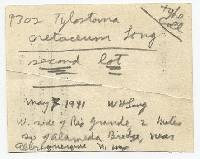 9302 Tylostoma
Type
Coll
cretaceum Long
second lot
May 7 1941 W H Long
W. side of Rio Grande, 2 miles
so of Alameda Bridge, near
Albuquerque N. Mex